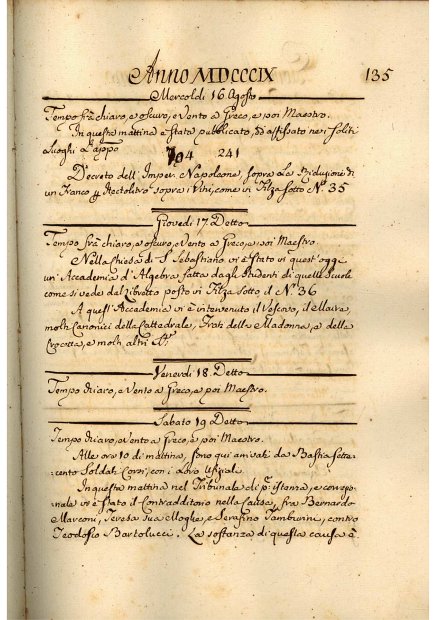 Anno MDCCCIX 135
Mercoldì 16 Agosto
Tempo frà chiaro, e oscuro, e Vento a Greco, e poi Maestro.
In questa mattina è stato pubblicato, ed affissato ne i soliti
Luoghi L'appo
794 241
D° Decreto dell' Imper. Napoleone, sopra La Riduzione di
un Franco Ettolitro sopra i Vini, come in Filza Sotto N.° 35
Giovedì 17 Detto
Tempo frà chiaro, e oscuro, e Vento a Greco, e poi Maestro.
Nella Chiesa di S. Sebastiano vi è stato in quest'oggi
un' Accademia d' Algebra fatta dagli Studenti di quelle Scuole
come si vede dal Libretto posto in Filza Sotto il N.° 36
A quest' Accademia vi è intervenuto il Vescovo, il Maire,
molti Canonici della Cattedrale, Frati della Madonna, e della
Crocetta, e molti altri
Venerdì 18 Detto
Tempo chiaro, e Vento a Greco, e poi Maestro.
Sabato 19 Detto
Tempo chiaro, e Vento a Greco, e poi Maestro.
Alle ore 10 di mattina, sono qui arrivati da Bastia sette-
cento Soldati Corsi, con i Loro Ufiziali
In questa mattina nel Tribunale di p.ª Istanza, e correzio-
nale vi è stato il Contradditorio nella Causa, frà Bernardo
Marconi, Teresa sua Moglie, e Serafino Tamburini, contro
Teodosio Bartolucci. La sostanza di questa causa è